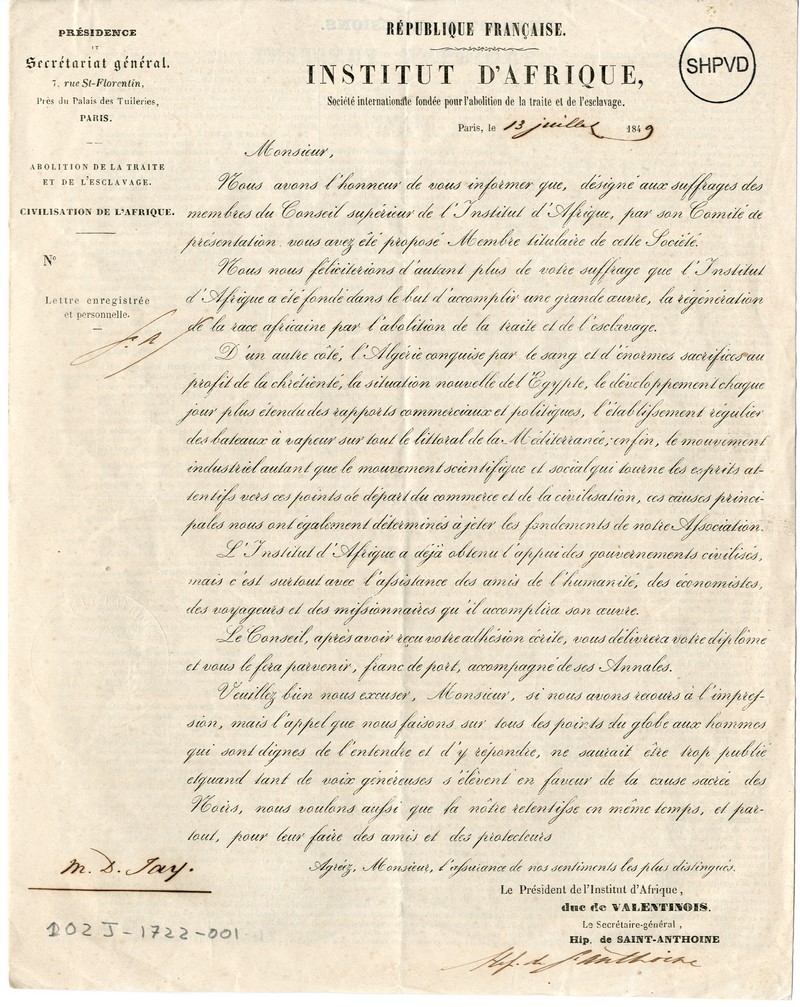 PRÉSIDENCE
ET
Secrétariat général.
7, rue St-Florentin,
Près du Palais des Tuileries,
PARIS.
ABOLITION DE LA TRAITE
ET DE L'ESCLAVAGE.
CIVILISATION DE L'AFRIQUE.
No
Lettre enregistrée
et personnelle.
RÉPUBLIQUE FRANÇAISE.
INSTITUT D'AFRIQUE,
Société internationale fondée pour l'abolition de la traite et de l'esclavage.
SHPVD
Paris, le 13 juillet 1849
Monsieur,
Nous avons l'honneur de vous informer que, désigné aux suffrages des
membres du Conseil supérieur de l'Institut d'Afrique, par son Comité de
présentation vous avez été proposé Membre titulaire de cette Société.
Nous nous féliciterions d'autant plus de votre suffrage que l'Institut
d'Afrique a été fondé dans le but d'accomplir une grande œuvre, la régénération
de la race africaine par l'abolition de la traite et de l'esclavage.
D'un autre côté, l'Algérie conquise par le sang et d'énormes sacrifices au
profit de la chrétienté, la situation nouvelle de l'Egypte, le développement chaque
jour plus étendu des rapports commerciaux et politiques, l'établissement régulier
des bateaux à vapeur sur tout le littoral de la Méditerranée; enfin, le mouvement
industriel autant que le mouvement scientifique et social qui tourne les esprits at-
tentifs vers ces points de départ du commerce et de la civilisation, ces causes princi-
pales nous ont également déterminés à jeter les fondements de notre Association.
L'Institut d'Afrique a déjà obtenu l'appui des gouvernements civilisés,
mais c'est surtout avec l'assistance des amis de l'humanité, des économistes,
des voyageurs et des missionnaires qu'il accomplira son œuvre.
Le Conseil, après avoir reçu votre adhésion écrite, vous délivrera votre diplôme
et vous le fera parvenir, franc de port, accompagné de ses Annales.
Veuillez bien nous excuser, Monsieur, si nous avons recours à l'impres-
sion, mais l'appel que nous faisons sur tous les points du globe aux hommes
qui sont dignes de l'entendre et d'y répondre, ne saurait être trop publié
et quand tant de voix généreuses s'élèvent en faveur de la cause sacrée des
Noirs, nous voulons aussi que la nôtre retentisse en même temps, et par-
tout, pour leur faire des amis et des protecteurs
Agréez, Monsieur, l'assurance de nos sentiments les plus distingués.
Le Président de l'Institut d'Afrique,
duc de VALENTINOIS.
Le Secrétaire-général,
Hip. de SAINT-ANTHOINE
Hip. de St Anthoine
M. D. Jay.
102 J-1722-001